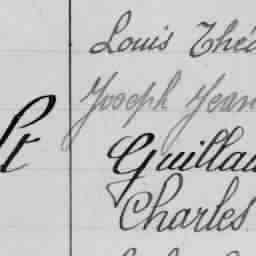 Louis Thé
Joseph Jean
Guillau
Charles